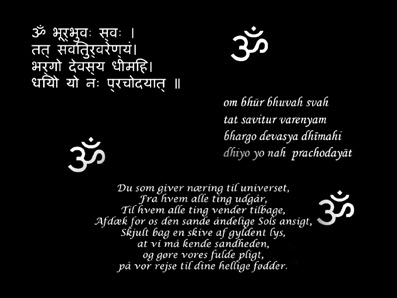 ॐ भूर्भुवः स्वः ।
तत् सवितुर्वरेण्यं।
भर्गो देवस्य धीमहि।
धियो यो नः प्रचोदयात् ॥
ॐ
om bhūr bhuvah svah
tat savitur varenyam
bhargo devasya dhīmahi
dhiyo yo nah prachodayāt
ॐ
Du som giver næring til universet,
Fra hvem alle ting udgår,
Til hvem alle ting vender tilbage,
Afdæk for os den sande åndelige Sols ansigt,
Skjult bag en skive af gyldent lys,
at vi må kende sandheden,
og gøre vores fulde pligt,
på vor rejse til dine hellige fødder.
ॐ